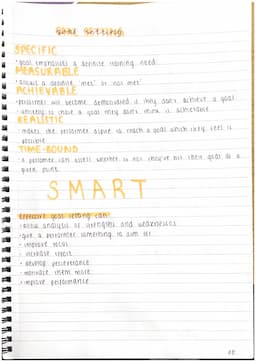 Goal setting
SPECIFIC
• goal emphasises a definite training need.
MEASURABLE
• allows a definite 'met' or 'not met'
ACHIEVABLE
• performers will become demotivated if they don't achieve a goal
• unlikely to chase a goal they don't think is achievable.
REALISTIC
• makes the performer aspire to reach a goal which they feel is
possible.
TIME-BOUND
• a performer can assess whether or not they've hit their goal at a
given point.
SMART
Effective goal setting can:
• allow analysis of strengths and weaknesses
• give a performer something to aim for
• improve focus
• increase effort
• develop perseverance
• motivate them more
• improve performance